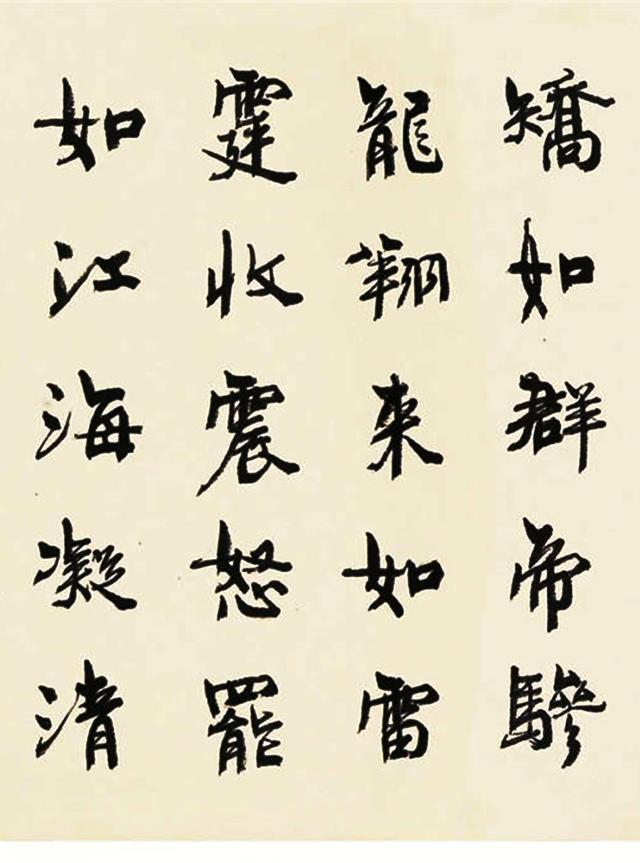 矯如群帝驂
龍翔来如雷
霆收震怒罷
如江海凝清